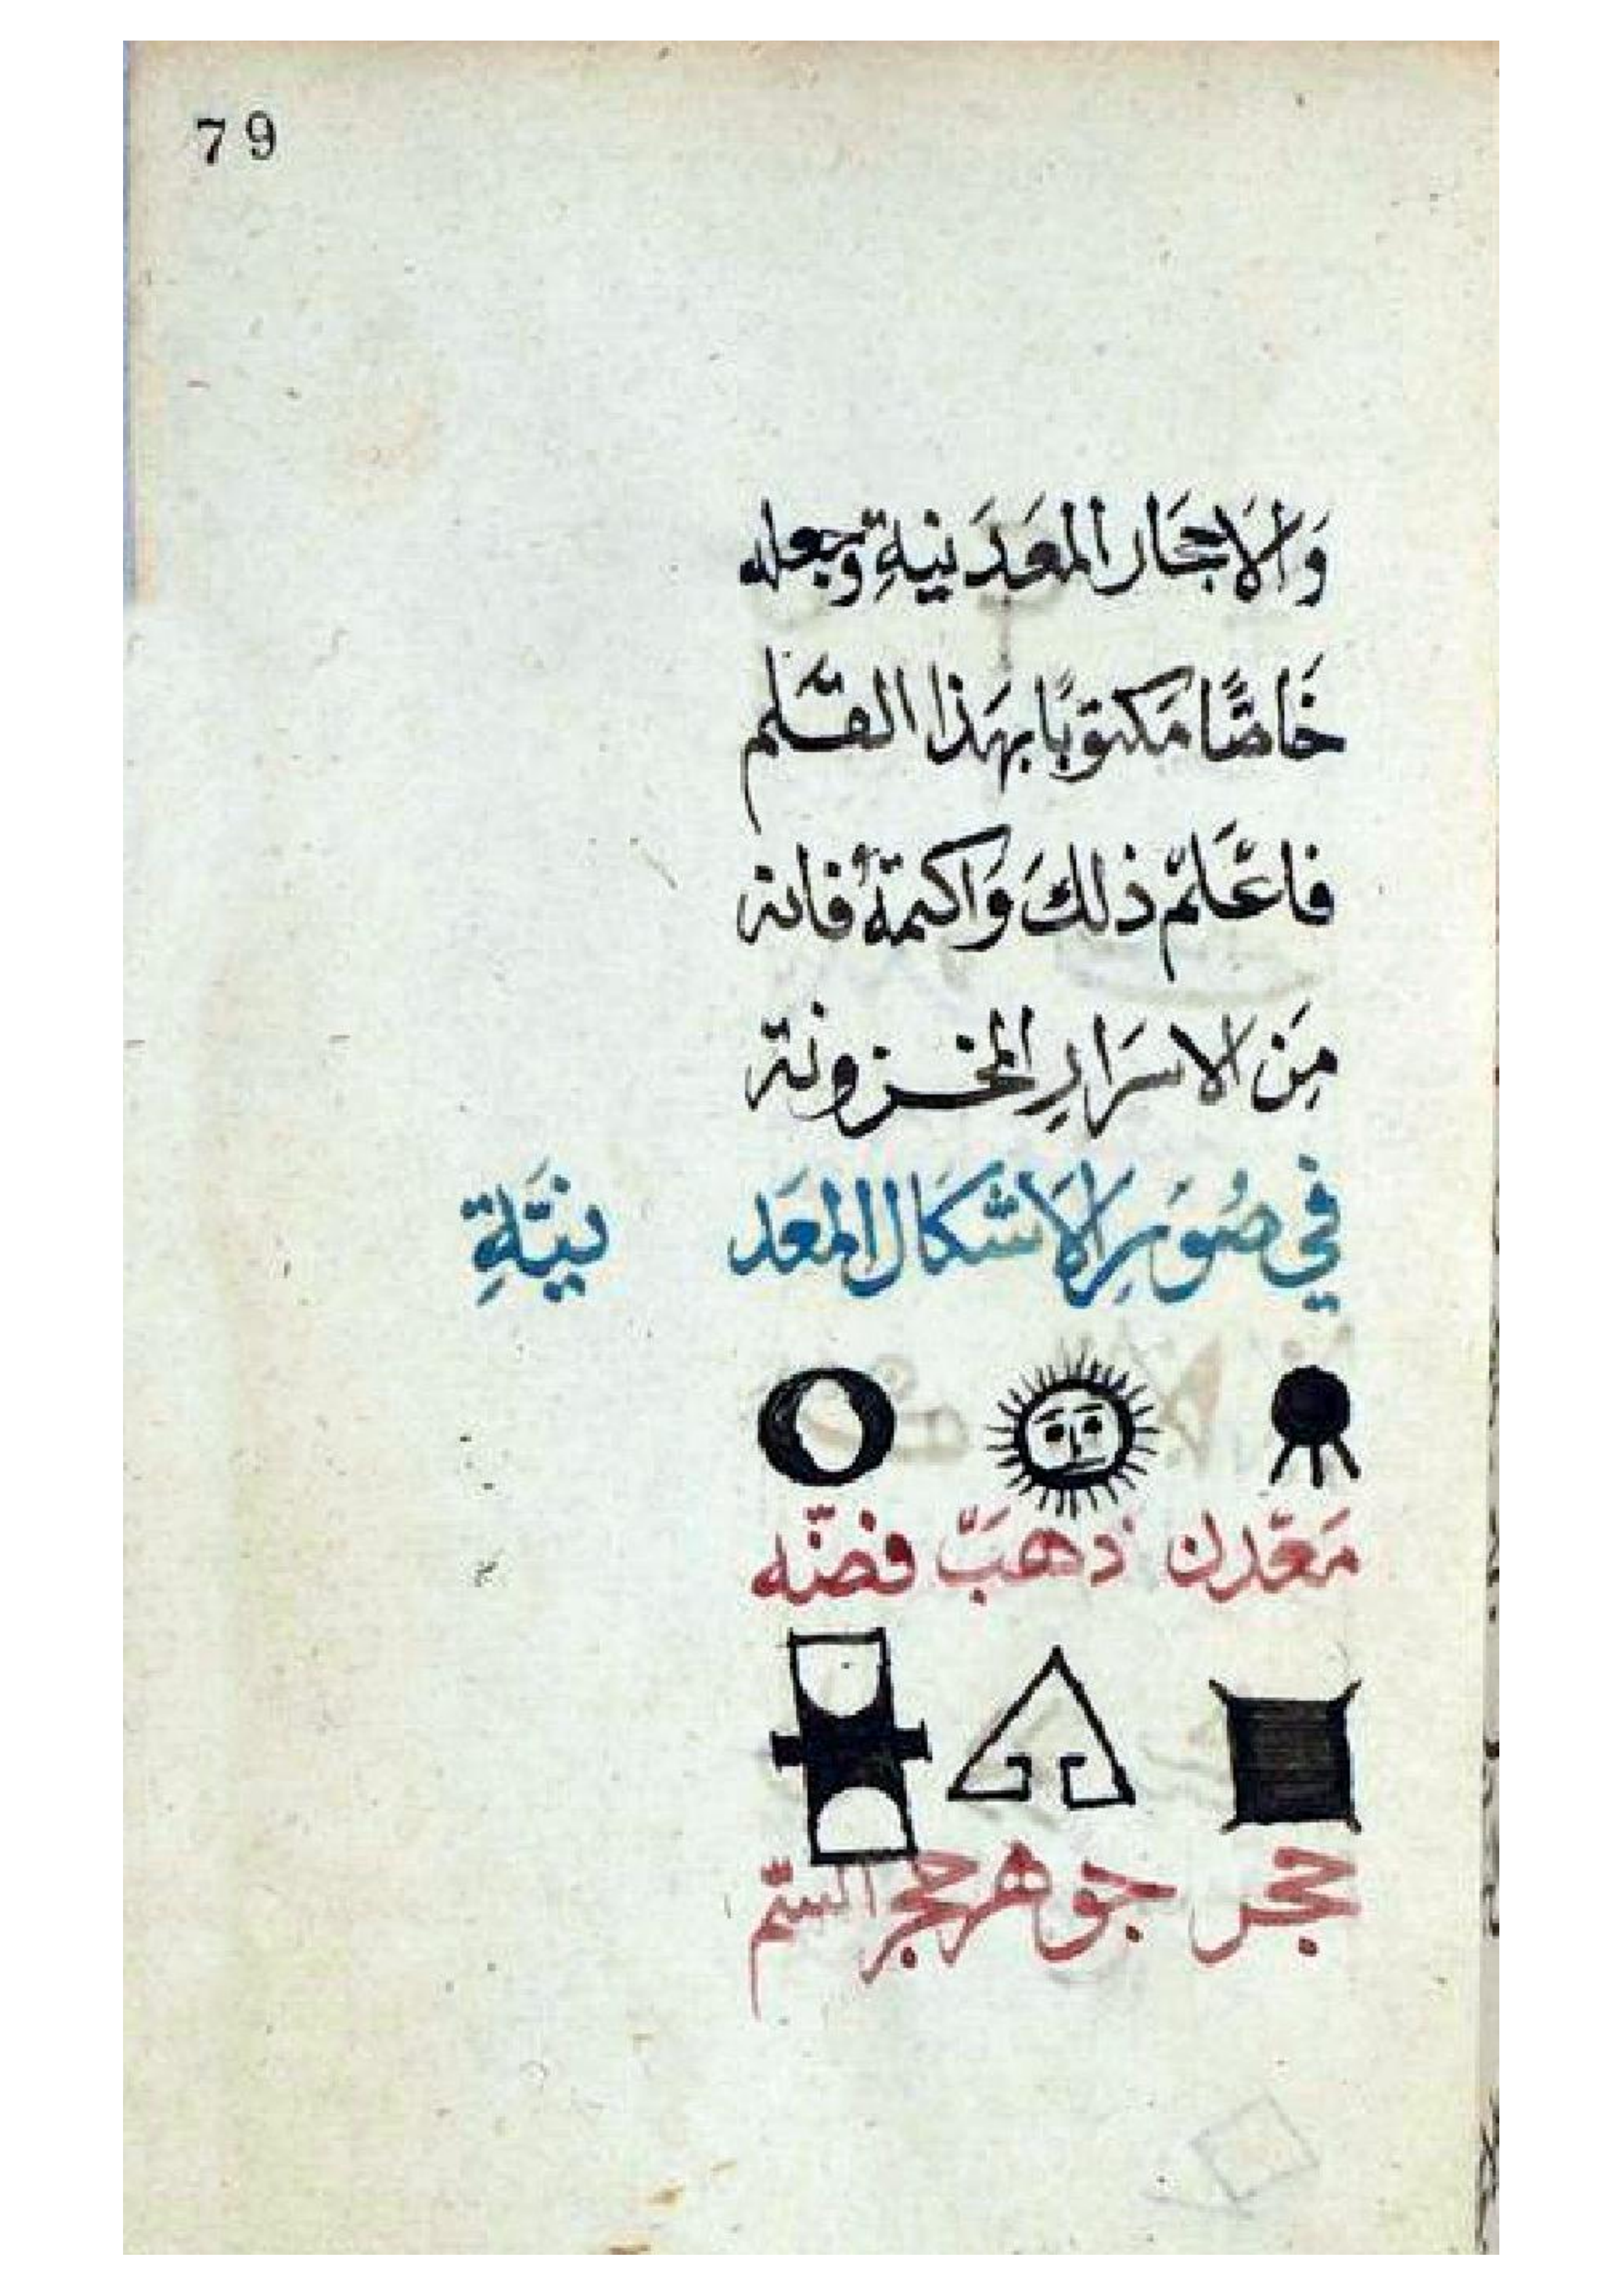 79
وَالاَحجَار المَعَدَنيةِ وجعله
خَاصًّا مَكتوبًا بهَذا القَلم
فاعْلَمْ ذلكَ وَاكتمهُ فانه
مِنَ الاسرَارِ المخزونة
في صُوَرِ الاَشكَال المعَدنيَّةِ
مَعْدن ذهَبْ فضّه
حجر جوهر حجر السّم